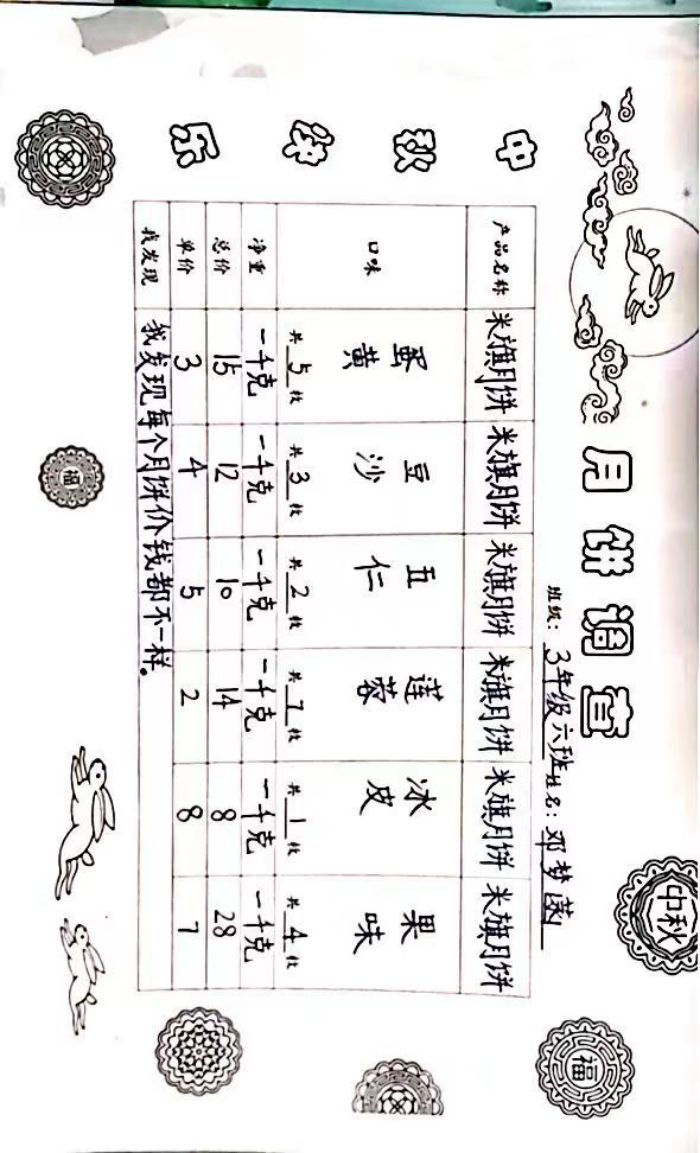 中秋快乐
月饼调查
班级：3年级六班 姓名：邓梦菡
产品名称 米旗月饼 米旗月饼 米旗月饼 米旗月饼 米旗月饼 米旗月饼
口味 蛋黄 豆沙 五仁 莲蓉 冰皮 果味
共5枚 共3枚 共2枚 共7枚 共1枚 共4枚
净重 一千克 一千克 一千克 一千克 一千克 一千克
总价 15 12 10 14 8 28
单价 3 4 5 2 8 7
我发现 我发现每个月饼价钱都不一样。
中秋
福
福